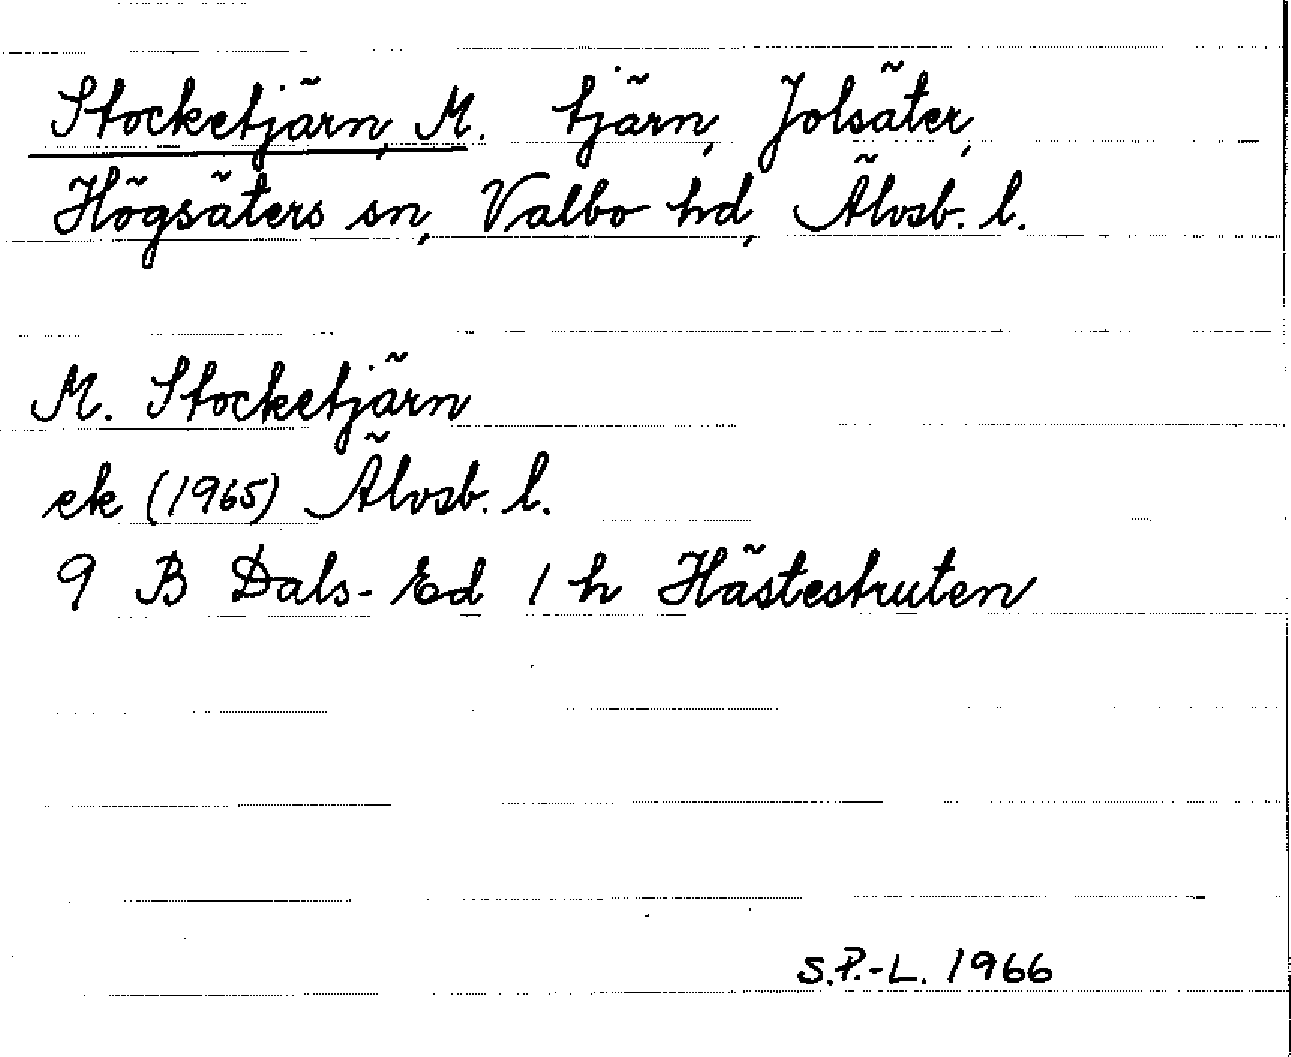 Stocketjärn, M. tjärn, Jolsäter,
Högsäters sn, Valbo hd, Älvsb. l.
M. Stocketjärn
ek (1965) Älvsb. l.
9 B Dals-Ed 1 h Hästestruten
S.P.-L. 1966